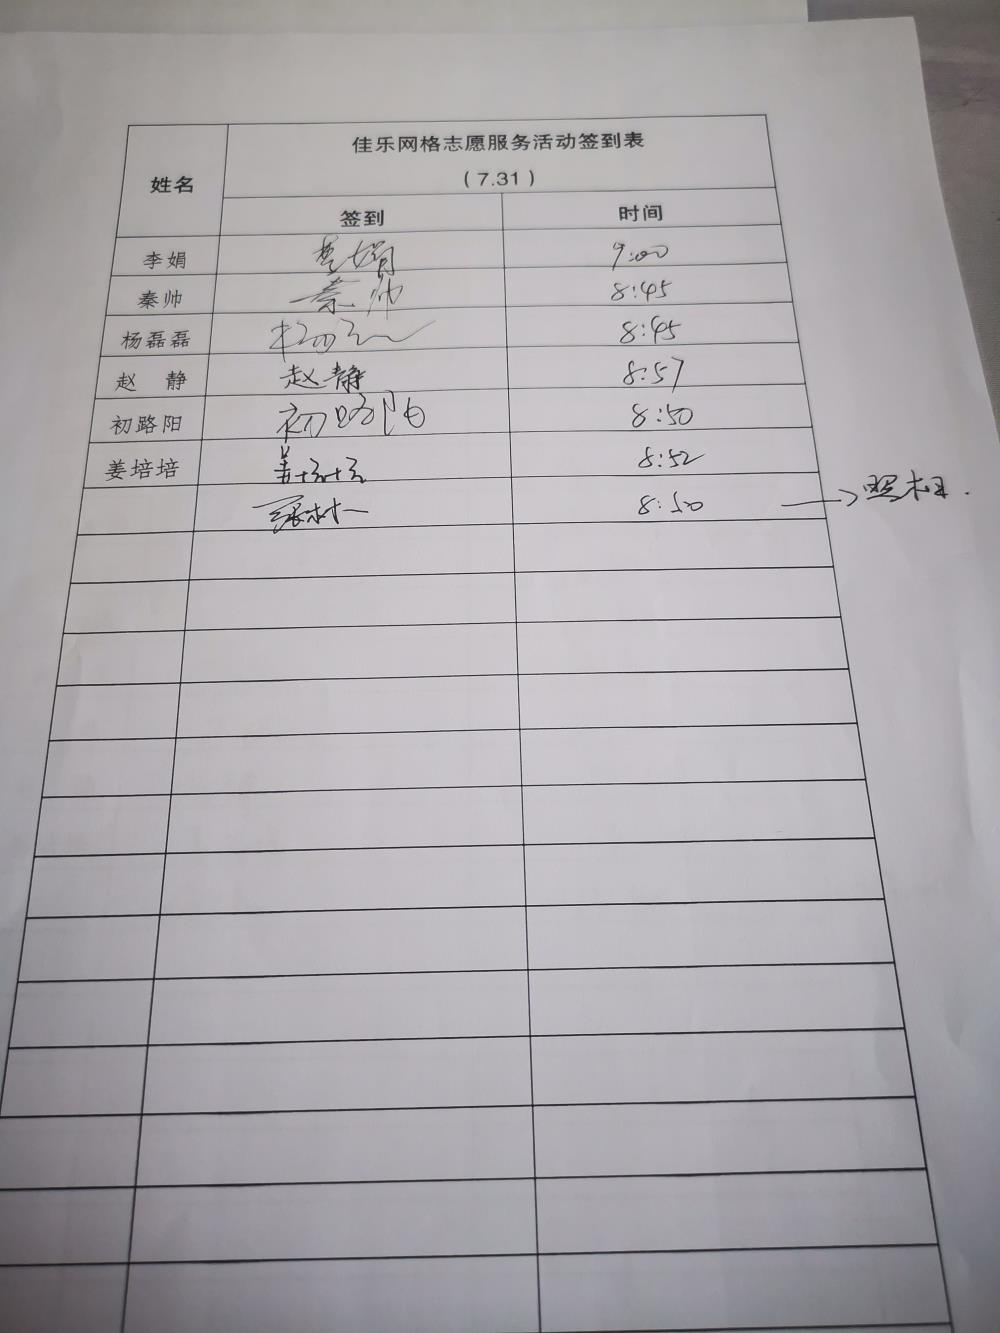 姓名
佳乐网格志愿服务活动签到表
（7.31）
签到 时间
李娟 李娟 9:00
秦帅 秦帅 8:45
杨磊磊 8:45
赵 静 赵静 8:57
初路阳 初路阳 8:50
姜培培 姜培培 8:52
8:50 →照相.